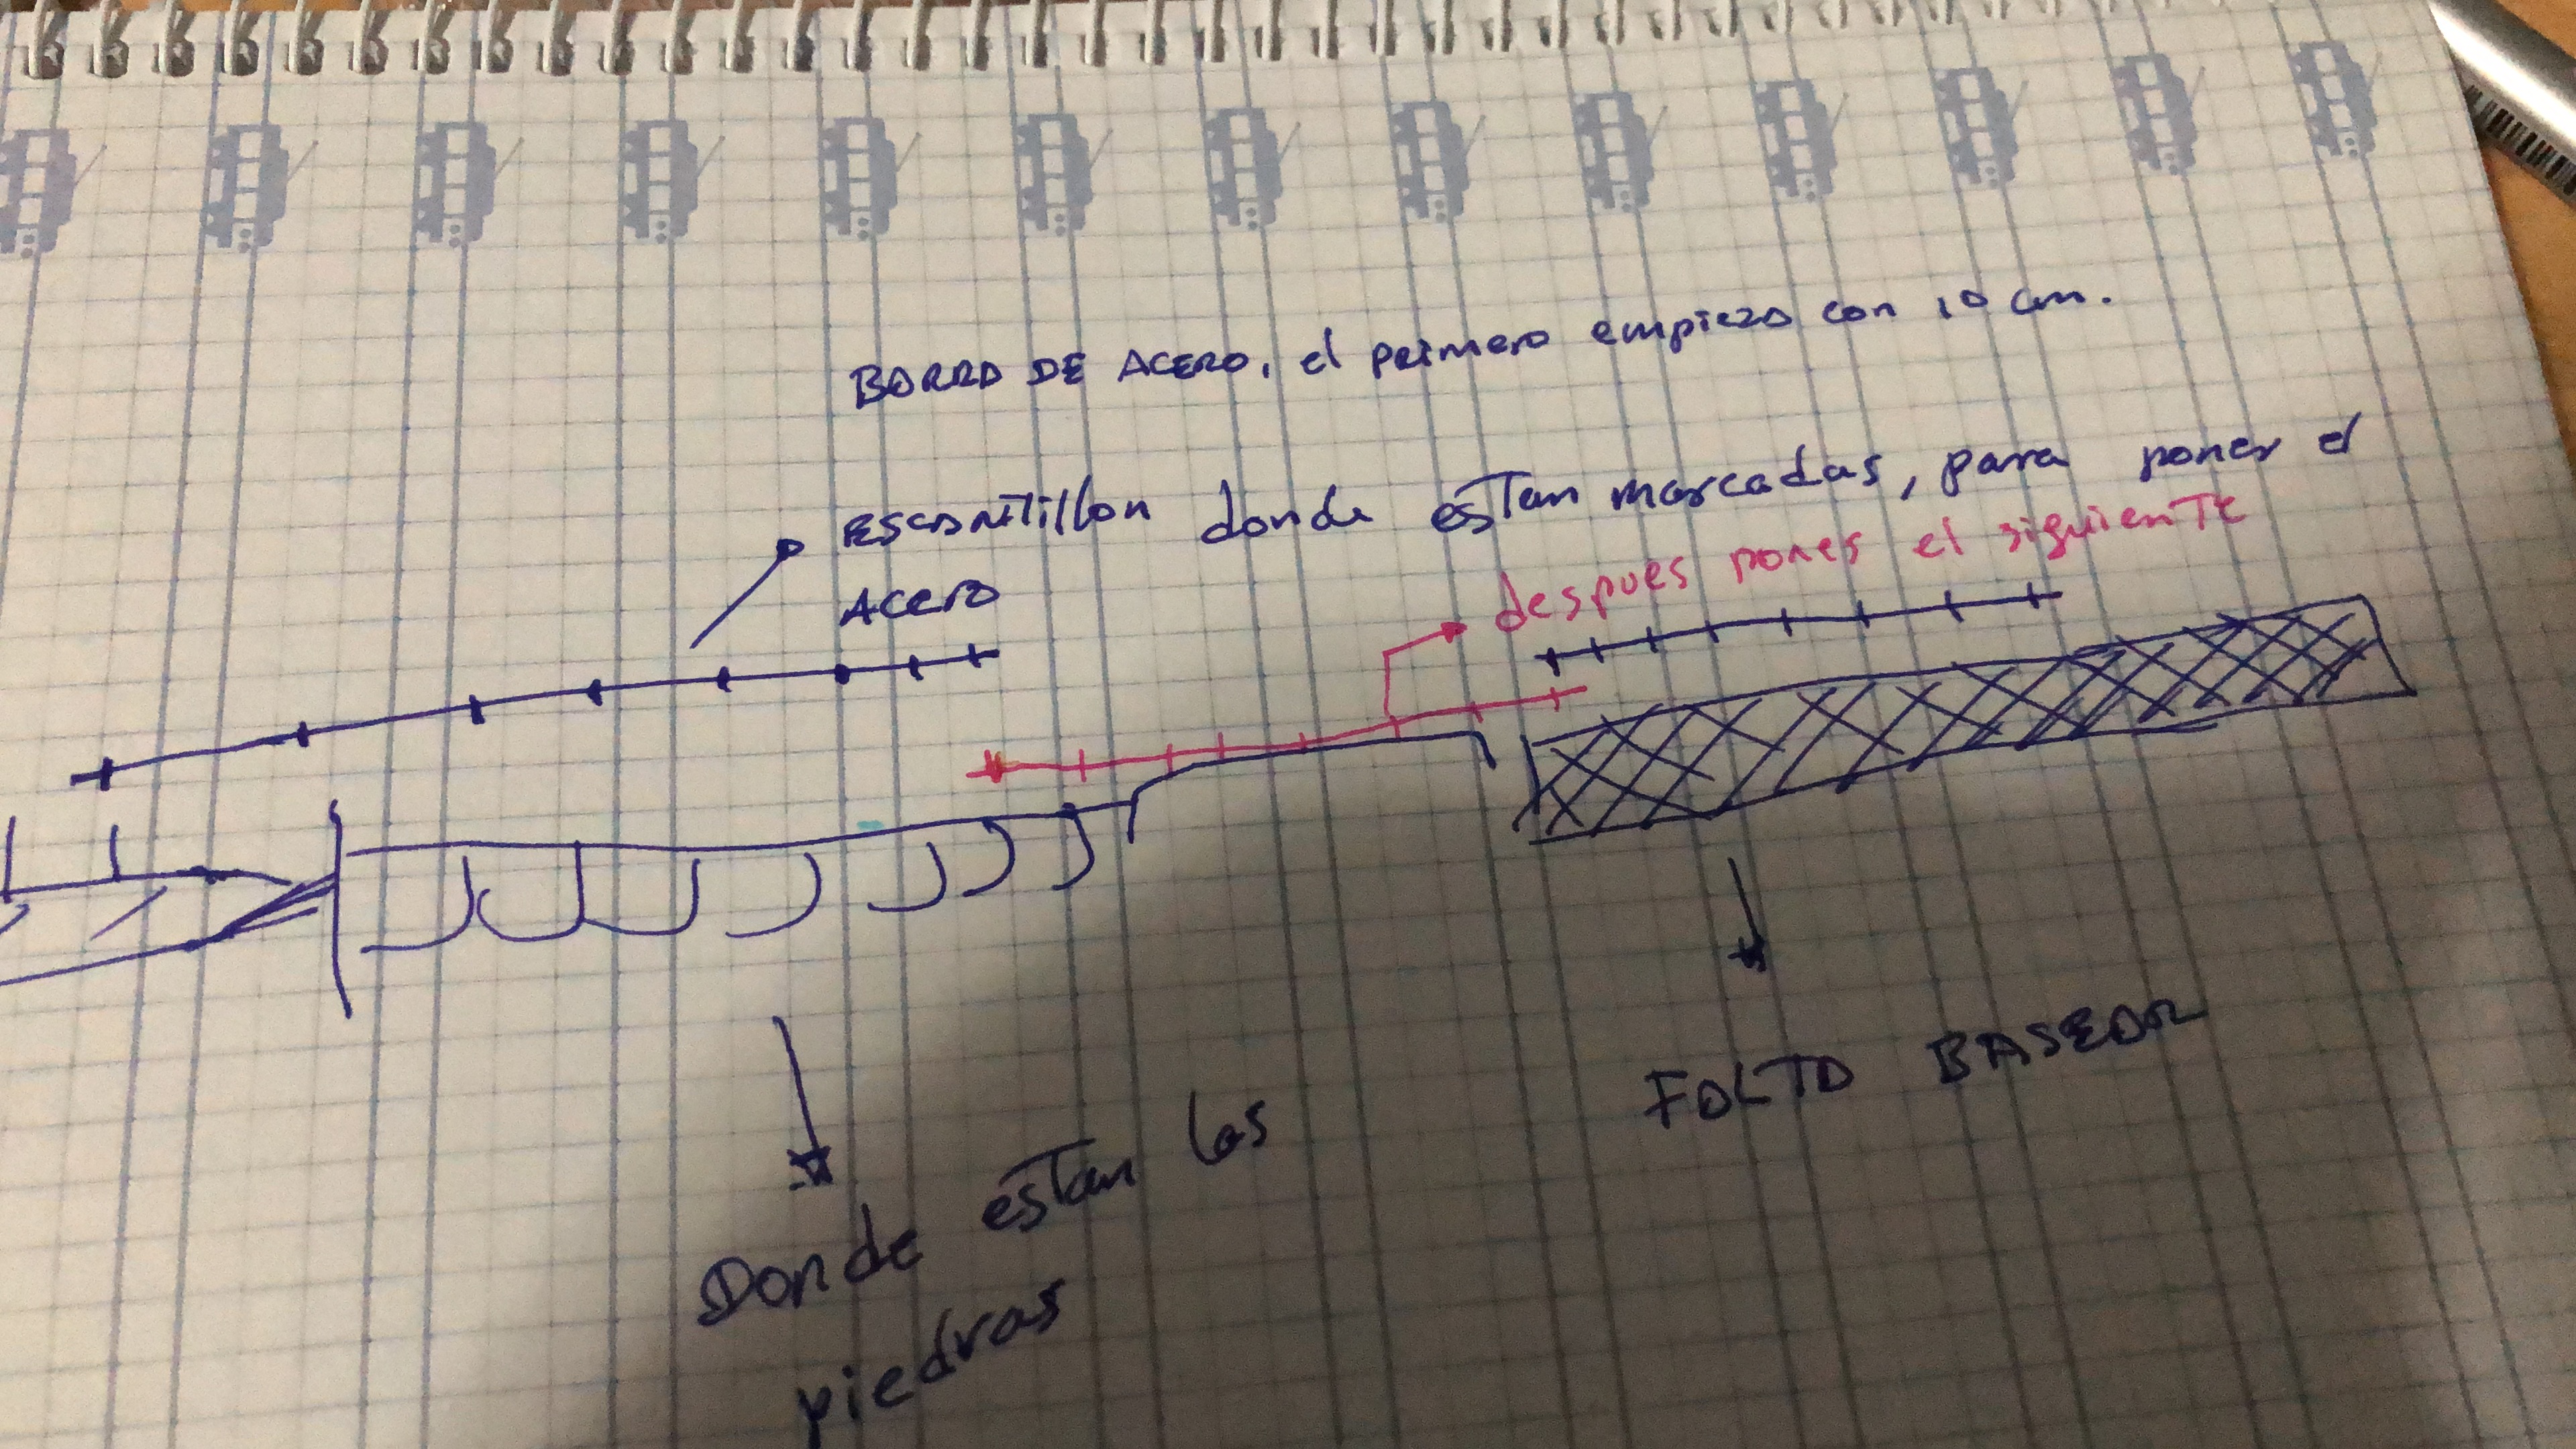 BORD DE ACERO, el primero empieza con 10 cm.
escantillon donde estan marcadas, para poner el
Acero
despues pones el siguiente
Donde estan las
piedras
FOLTD BASEOR